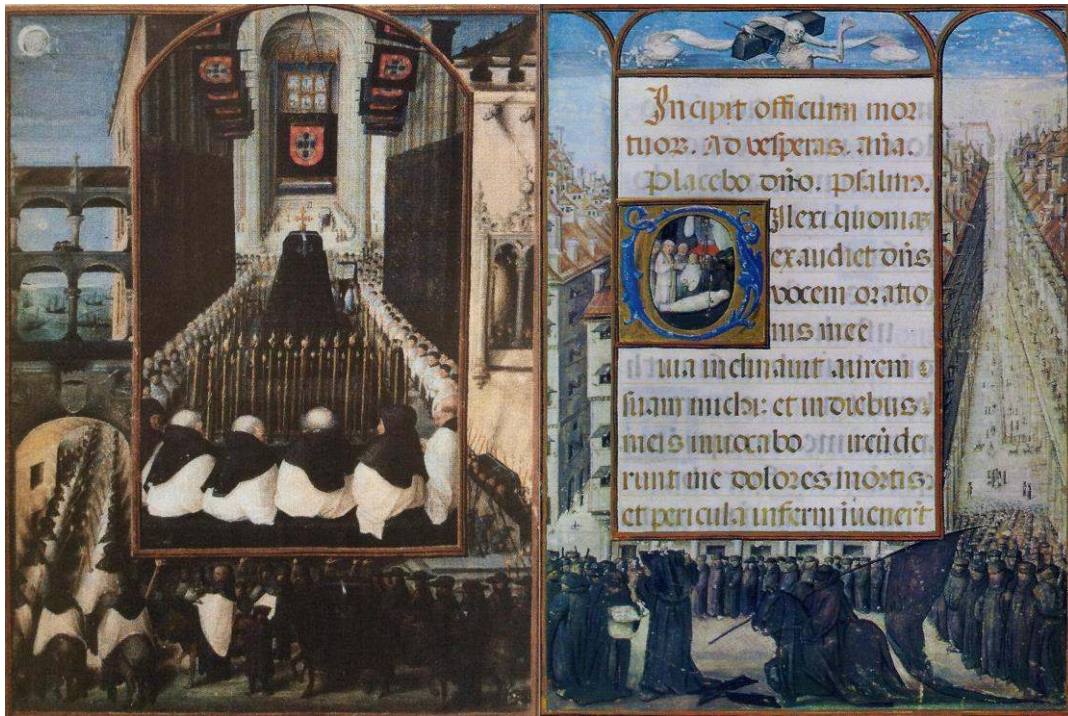 Incipit officium mor
tuoꝝ. Ad vesperas. aña.
Placebo dño. Psalm9.
Dilexi quoniaz
exaudiet dñs
vocem oratio
nis mee
uia inclinauit aurem
suam michi: et in diebus
meis inuocabo ircũde
runt me dolores mortis:
et pericula inferni ĩuenerũt